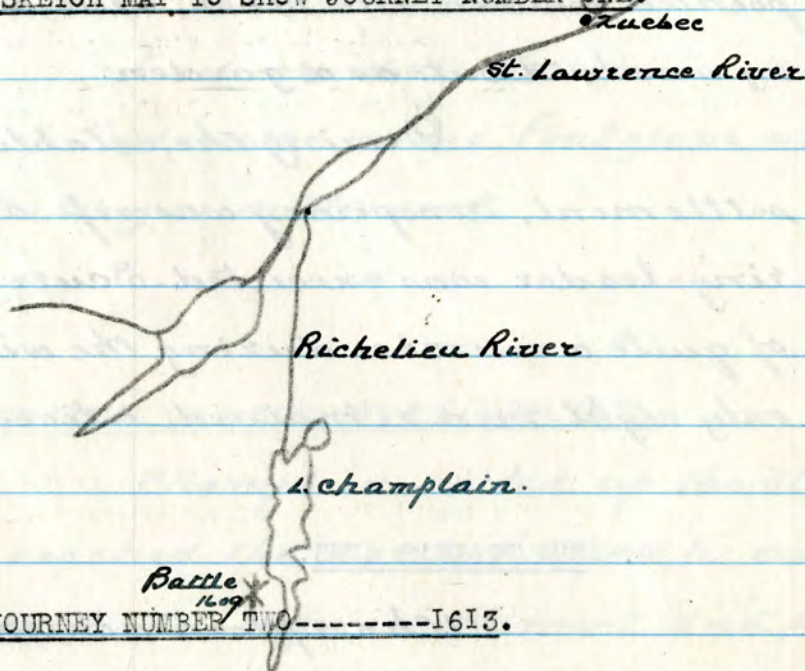 SKETCH MAP TO SHOW JOURNEY NUMBER ONE.
Quebec
St. Lawrence River
Richelieu River
L. Champlain.
Battle
1609
JOURNEY NUMBER TWO--------1613.